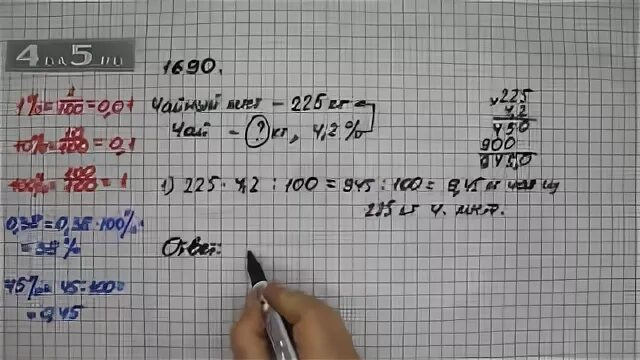 4 на 5 ПП
1690.
Чайный лист – 225 кг
Чай – ? кг, 4,2%
225
4,2
450
900
945,0
1) 225 · 4,2 : 100 = 945 : 100 = 9,45 кг чая из
225 кг ч. лист.
Ответ:
1% = 1/100 = 0,01
10% = 10/100 = 0,1
100% = 100/100 = 1
= 0,35 · 100%
45 : 100 =